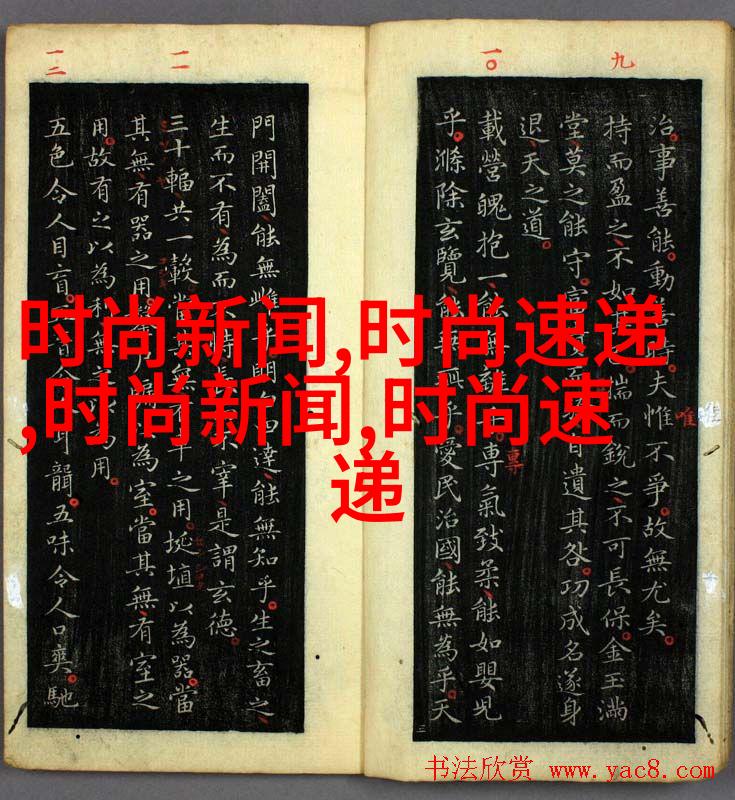 九
一〇
治。事善能。動善時。夫惟不爭。故無尤矣。
唯
持而盈之、不如揣而銳之、不可長保。金玉滿
堂、莫之能守。自遺其咎。功成名遂身
退、天之道。
載營魄抱一、能無專氣致柔、能如嬰兒
專
乎。滌除玄覽、能無疵乎。愛民治國、能無為乎。天
一一
一二
門開闔、能無雌乎。達、能無知乎。生之畜之、
生而不有、為而不宰、是謂玄德。
三十輻、共一轂、當無之用。埏埴以為器、當
其無、有器之用。為室。當其無、有室之
用。故有之以為利、用。
五色令人目盲。五音令人耳聾。五味令人口爽。馳
时尚新闻,时尚速递
,时尚新闻,时尚速
递
书法欣赏 www.yac8.com